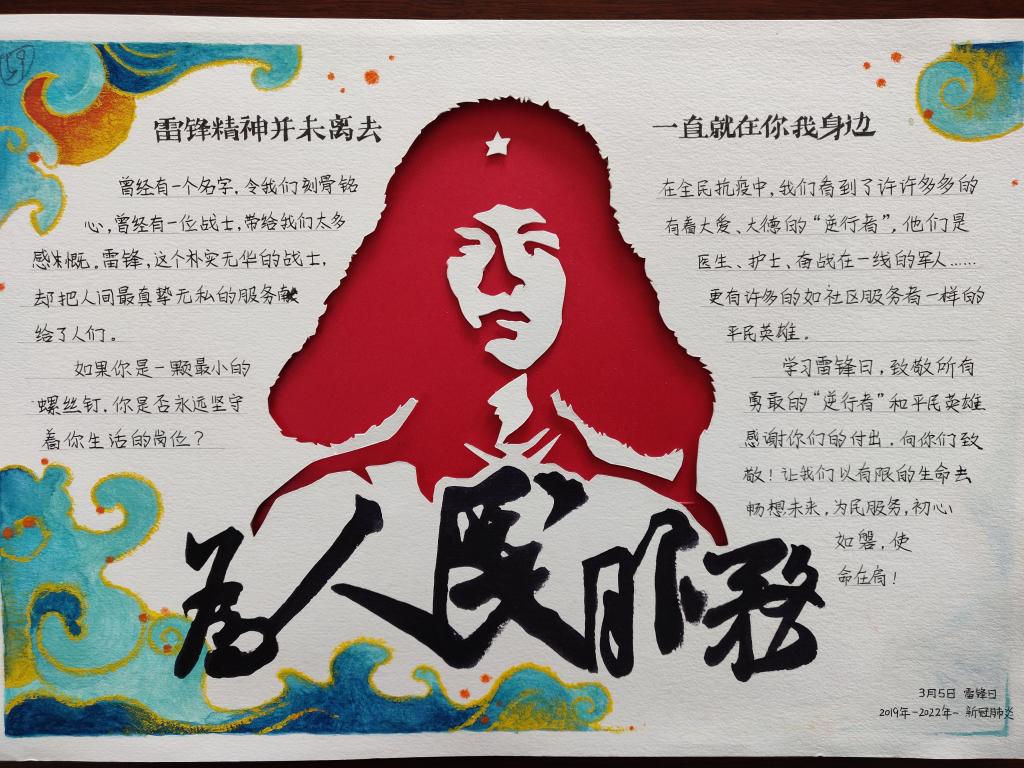 59
雷锋精神并未离去
曾经有一个名字,令我们刻骨铭
心,曾经有一位战士,带给我们太多
感慨。雷锋,这个朴实无华的战士,
却把人间最真挚无私的服务献
给了人们。
如果你是一颗最小的
螺丝钉,你是否永远坚守
着你生活的岗位?
一直就在你我身边
在全民抗疫中,我们看到了许许多多的
有着大爱、大德的“逆行者”,他们是
医生、护士、奋战在一线的军人……
更有许多的如社区服务者一样的
平民英雄。
学习雷锋日,致敬所有
勇敢的“逆行者”和平民英雄
感谢你们的付出,向你们致
敬!让我们以有限的生命去
畅想未来,为民服务,初心
如磐,使
命在肩!
为人民服务
3月5日 雷锋日
2019年-2022年- 新冠肺炎